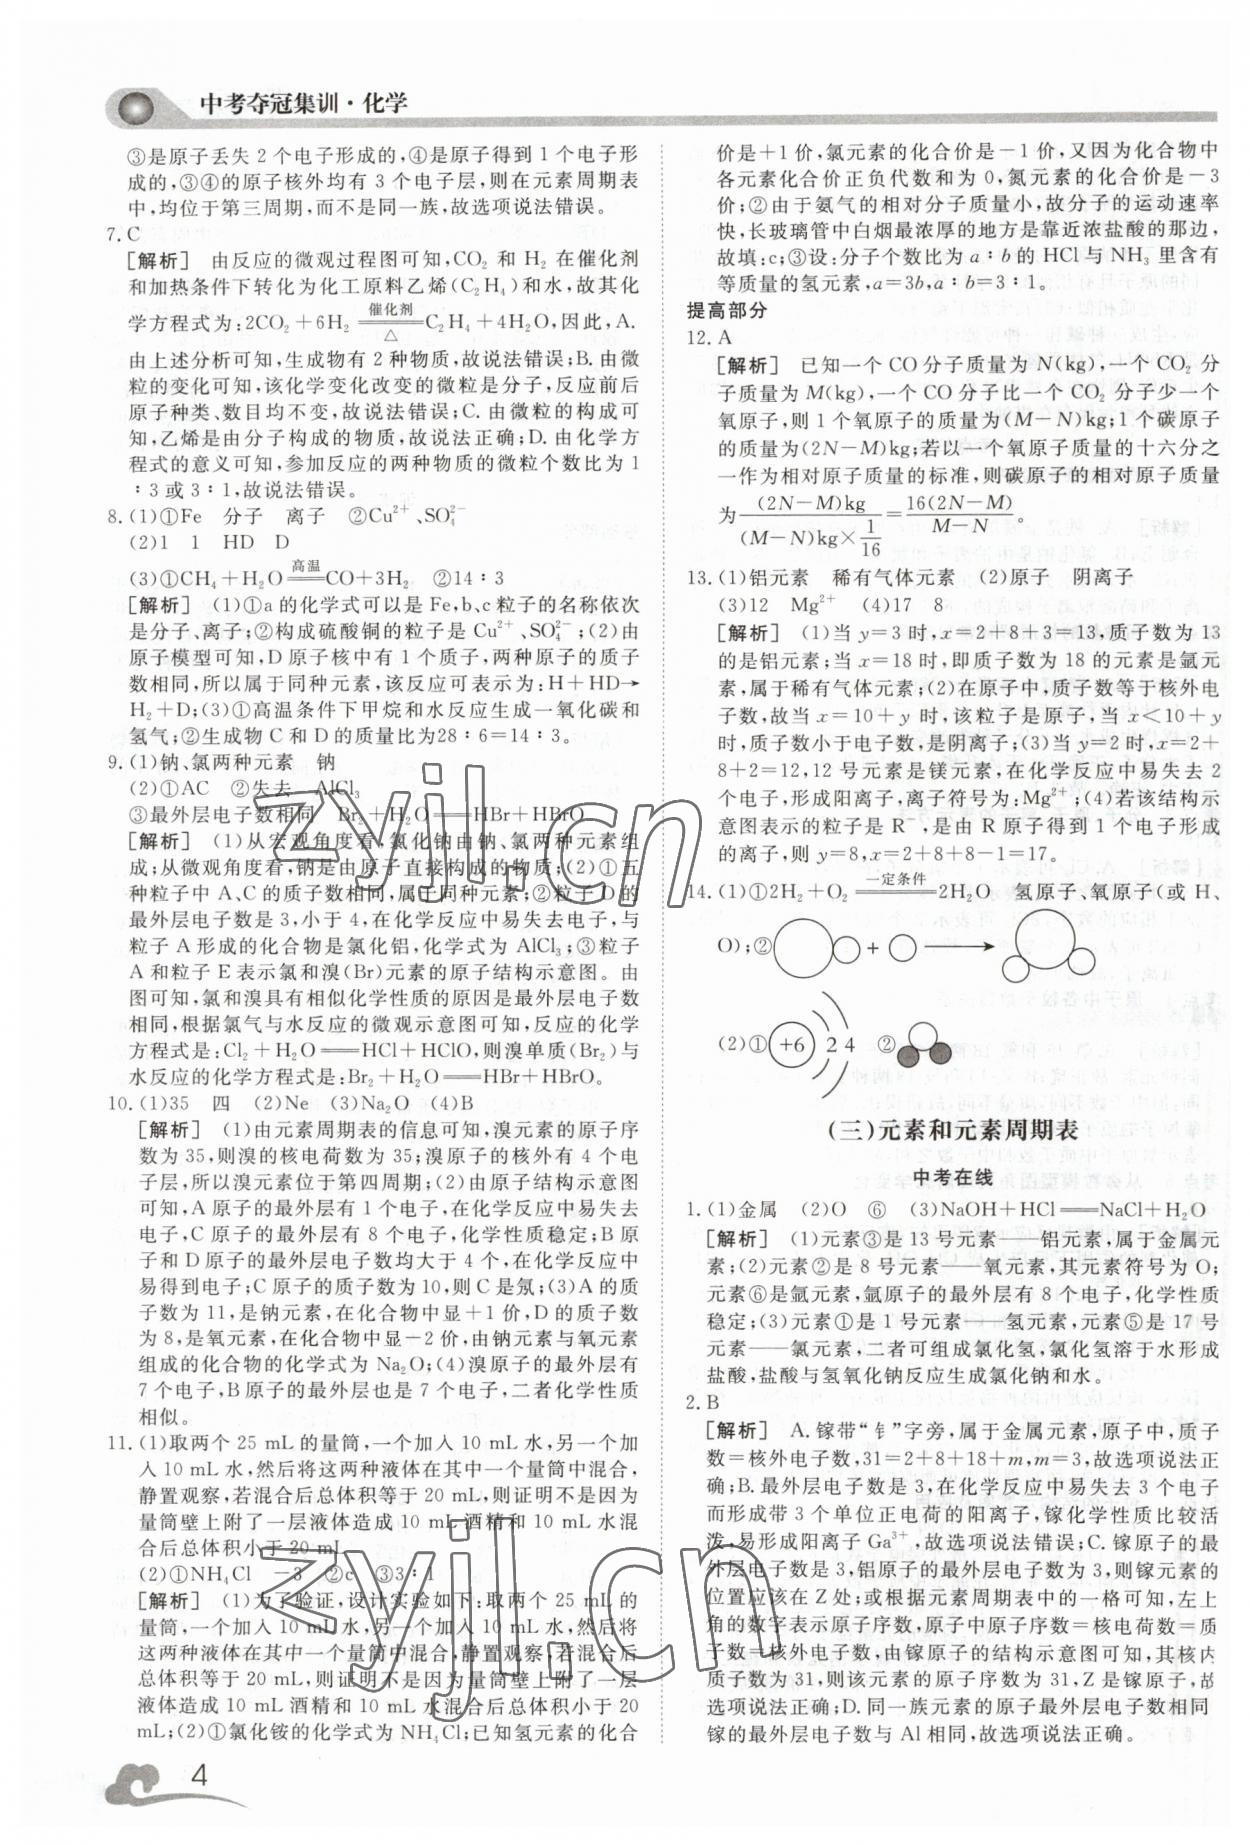 中考夺冠集训·化学
③是原子丢失 2 个电子形成的,④是原子得到 1 个电子形
成的,③④的原子核外均有 3 个电子层,则在元素周期表
中,均位于第三周期,而不是同一族,故选项说法错误。
7. C
[解析] 由反应的微观过程图可知,CO₂ 和 H₂ 在催化剂
和加热条件下转化为化工原料乙烯(C₂H₄)和水,故其化
学方程式为:2CO₂+6H₂ 催化剂 △ C₂H₄+4H₂O,因此,A.
由上述分析可知,生成物有 2 种物质,故说法错误;B. 由微
粒的变化可知,该化学变化改变的微粒是分子,反应前后
原子种类、数目均不变,故说法错误;C. 由微粒的构成可
知,乙烯是由分子构成的物质,故说法正确;D. 由化学方
程式的意义可知,参加反应的两种物质的微粒个数比为 1
∶3 或 3∶1,故说法错误。
8. (1)①Fe 分子 离子 ②Cu²⁺、SO₄²⁻
(2)1 1 HD D
(3)①CH₄+H₂O 高温 CO+3H₂ ②14∶3
[解析] (1)①a 的化学式可以是 Fe,b、c 粒子的名称依次
是分子、离子;②构成硫酸铜的粒子是 Cu²⁺、SO₄²⁻;(2)由
原子模型可知,D 原子核中有 1 个质子,两种原子的质子
数相同,所以属于同种元素,该反应可表示为:H+HD→
H₂+D;(3)①高温条件下甲烷和水反应生成一氧化碳和
氢气;②生成物 C 和 D 的质量比为28∶6=14∶3。
9. (1)钠、氯两种元素 钠
(2)①AC ②失去 AlCl₃
③最外层电子数相同 Br₂+H₂O══HBr+HBrO
[解析] (1)从宏观角度看,氯化钠由钠、氯两种元素组
成;从微观角度看,钠是由原子直接构成的物质;(2)①五
种粒子中 A、C 的质子数相同,属于同种元素;②粒子 D 的
最外层电子数是 3,小于 4,在化学反应中易失去电子,与
粒子 A 形成的化合物是氯化铝,化学式为 AlCl₃;③粒子
A 和粒子 E 表示氯和溴(Br)元素的原子结构示意图。由
图可知,氯和溴具有相似化学性质的原因是最外层电子数
相同,根据氯气与水反应的微观示意图可知,反应的化学
方程式是:Cl₂+H₂O══HCl+HClO,则溴单质(Br₂)与
水反应的化学方程式是:Br₂+H₂O══HBr+HBrO。
10. (1)35 四 (2)Ne (3)Na₂O (4)B
[解析] (1)由元素周期表的信息可知,溴元素的原子序
数为 35,则溴的核电荷数为 35;溴原子的核外有 4 个电
子层,所以溴元素位于第四周期;(2)由原子结构示意图
可知,A 原子的最外层有 1 个电子,在化学反应中易失去
电子,C 原子的最外层有 8 个电子,化学性质稳定;B 原
子和 D 原子的最外层电子数均大于 4 个,在化学反应中
易得到电子;C 原子的质子数为 10,则 C 是氖;(3)A 的质
子数为 11,是钠元素,在化合物中显+1 价,D 的质子数
为 8,是氧元素,在化合物中显-2 价,由钠元素与氧元素
组成的化合物的化学式为 Na₂O;(4)溴原子的最外层有
7 个电子,B 原子的最外层也是 7 个电子,二者化学性质
相似。
11. (1)取两个 25 mL 的量筒,一个加入 10 mL 水,另一个加
入 10 mL 水,然后将这两种液体在其中一个量筒中混合,
静置观察,若混合后总体积等于 20 mL,则证明不是因为
量筒壁上附了一层液体造成 10 mL 酒精和 10 mL 水混
合后总体积小于 20 mL
(2)①NH₄Cl -3 ②c ③3∶1
[解析] (1)为了验证,设计实验如下:取两个 25 mL 的
量筒,一个加入 10 mL 水,另一个加入 10 mL 水,然后将
这两种液体在其中一个量筒中混合,静置观察,若混合后
总体积等于 20 mL,则证明不是因为量筒壁上附了一层
液体造成 10 mL 酒精和 10 mL 水混合后总体积小于 20
mL;(2)①氯化铵的化学式为 NH₄Cl;已知氢元素的化合
价是+1 价,氯元素的化合价是-1 价,又因为化合物中
各元素化合价正负代数和为 0,氮元素的化合价是-3
价;②由于氨气的相对分子质量小,故分子的运动速率
快,长玻璃管中白烟最浓厚的地方是靠近浓盐酸的那边,
故填:c;③设:分子个数比为 a∶b 的 HCl 与 NH₃ 里含有
等质量的氢元素,a=3b,a∶b=3∶1。
提高部分
12. A
[解析] 已知一个 CO 分子质量为 N(kg),一个 CO₂ 分
子质量为 M(kg),一个 CO 分子比一个 CO₂ 分子少一个
氧原子,则 1 个氧原子的质量为(M-N)kg;1 个碳原子
的质量为(2N-M)kg;若以一个氧原子质量的十六分之
一作为相对原子质量的标准,则碳原子的相对原子质量
为 (2N-M)kg/((M-N)kg×1/16)=16(2N-M)/(M-N)。
13. (1)铝元素 稀有气体元素 (2)原子 阴离子
(3)12 Mg²⁺ (4)17 8
[解析] (1)当 y=3 时,x=2+8+3=13,质子数为 13
的是铝元素;当 x=18 时,即质子数为 18 的元素是氩元
素,属于稀有气体元素;(2)在原子中,质子数等于核外电
子数,故当 x=10+y 时,该粒子是原子,当 x<10+y
时,质子数小于电子数,是阴离子;(3)当 y=2时,x=2+
8+2=12,12 号元素是镁元素,在化学反应中易失去 2
个电子,形成阳离子,离子符号为:Mg²⁺;(4)若该结构示
意图表示的粒子是 R⁻,是由 R 原子得到 1 个电子形成
的离子,则 y=8,x=2+8+8-1=17。
14. (1)①2H₂+O₂ 一定条件 2H₂O 氢原子、氧原子(或 H、
O);② + →
(2)① +6 2 4 ②
(三)元素和元素周期表
中考在线
1. (1)金属 (2)O ⑥ (3)NaOH+HCl══NaCl+H₂O
[解析] (1)元素③是 13 号元素——铝元素,属于金属元
素;(2)元素②是 8 号元素——氧元素,其元素符号为 O;
元素⑥是氩元素,氩原子的最外层有 8 个电子,化学性质
稳定;(3)元素①是 1 号元素——氢元素,元素⑤是 17 号
元素——氯元素,二者可组成氯化氢,氯化氢溶于水形成
盐酸,盐酸与氢氧化钠反应生成氯化钠和水。
2. B
[解析] A. 镓带“钅”字旁,属于金属元素,原子中,质子
数=核外电子数,31=2+8+18+m,m=3,故选项说法正
确;B. 最外层电子数是 3,在化学反应中易失去 3 个电子
而形成带 3 个单位正电荷的阳离子,镓化学性质比较活
泼,易形成阳离子 Ga³⁺,故选项说法错误;C. 镓原子的最
外层电子数是 3,铝原子的最外层电子数为 3,则镓元素的
位置应该在 Z 处;或根据元素周期表中的一格可知,左上
角的数字表示原子序数,原子中原子序数=核电荷数=质
子数=核外电子数,由镓原子的结构示意图可知,其核内
质子数为 31,则该元素的原子序数为 31,Z 是镓原子,故
选项说法正确;D. 同一族元素的原子最外层电子数相同,
镓的最外层电子数与 Al 相同,故选项说法正确。
4
zyjl.cn
zyjl.cn